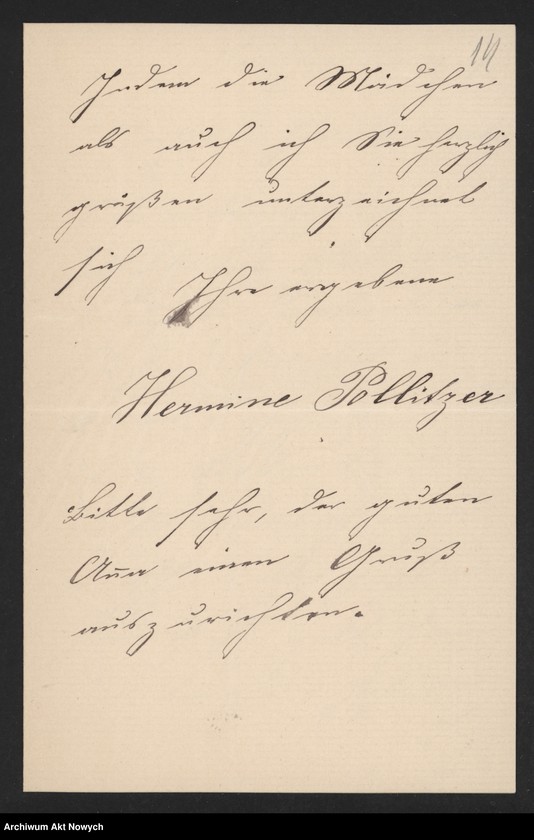 14
Indem die Mädchen
als auch ich Sie herzlich
grüßen unterzeichnet
sich
Ihre ergebene
Hermine Pollitzer
Bitte sehr, der guten
Anna einen Gruß
auszurichten.
Archiwum Akt Nowych